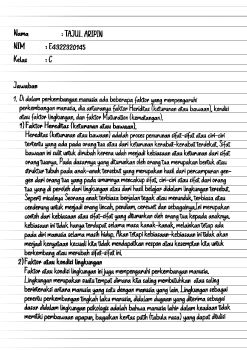 Nama : TAJUL ARIPIN
NIM : E48322320145
Kelas : C
Jawaban
1. Di dalam perkembangan manusia ada beberapa faktor yang mempengaruhi
perkembangan manusia, dia antaranya faktor Heriditas (keturunan atau bawaan), kondisi
atau faktor lingkungan, dan faktor Maturation (kematangan).
1) Faktor Hereditas (keturunan atau bawaan),
Hereditas (keturunan atau bawaan) adalah proses penurunan sifat-sifat atau ciri-ciri
tertentu yang ada pada orang tua atau dari keturunan kerabat-kerabat terdekat. Sifat
bawaan ini sulit untuk dirubah karena udah menjadi kebiasaan atau keturunan dari sifat
orang tuanya, Pada dasarnya yang diturunkan oleh orang tua merupakan bentuk atau
struktur tubuh pada anak-anak tersebut yang merupakan hasil dari percampuran gen-
gen dari orang tua yang pada umumnya mencakup sifat, ciri-ciri dan atau sifat dari orang
tua yang di peroleh dari lingkungan atau dari hasil belajar didalam lingkungan tersebut.
Seperti misalnya: Seorang anak terbiasa berjalan tegak atau menunduk, terbiasa atau
cenderung untuk menjadi orang lincah, pendiam, cerewet dan sebagainya, ini merupakan
contoh dari kebiasaan atau sifat-sifat yang diturunkan oleh orang tua kepada anaknya,
kebiasaan ini tidak hanya terdapat selama masa kanak-kanak, melainkan tetap ada
pada diri manusia selama masih hidup. Akan tetapi kebiasaan-kebiasaan ini tidak akan
menjadi kenyataan kecuali kita tidak mendapatkan respon atau kesempatan kita untuk
berkembang atau merubah sifat-sifat ini.
2) Faktor atau kondisi lingkungan
Faktor atau kondisi lingkungan ini juga mempengaruhi perkembangan manusia.
Lingkungan merupakan suatu tempat dimana kita saling membutuhkan atau saling
berinteraksi antara manusia yang satu dengan manusia yang lain. Lingkungan sebagai
penentu perkembangan tingkah laku manusia, didalam dugaan yang diterima sebagai
dasar didalam lingkungan psikologis adalah bahwa manusia lahir dalam keadaan tidak
memiliki pembawaan apapun, bagaikan kertas putih (tabula rasa) yang dapat ditulisi